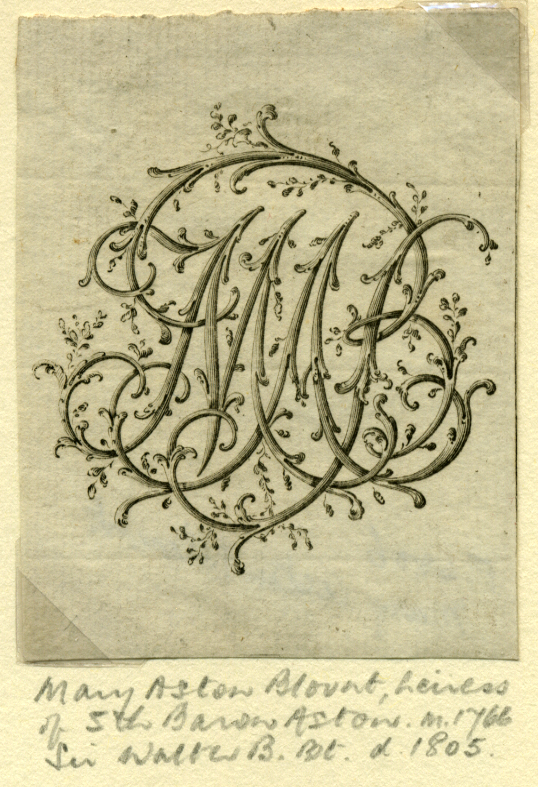 MAB
Mary Aston Blount, heiress
of 5th Baron Aston. m. 1766
Sir Walter B. Bt. d. 1805.